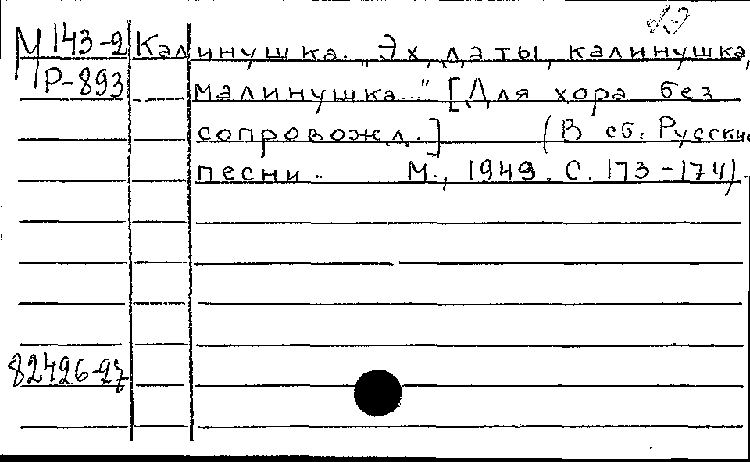 М 143-2 Калинушка. „Эх, да ты, калинушка,
Р-893 малинушка..." [Для хора без
сопровожд.] (В сб. Русские
песни. М., 1949. С. 173-174).
82426-27